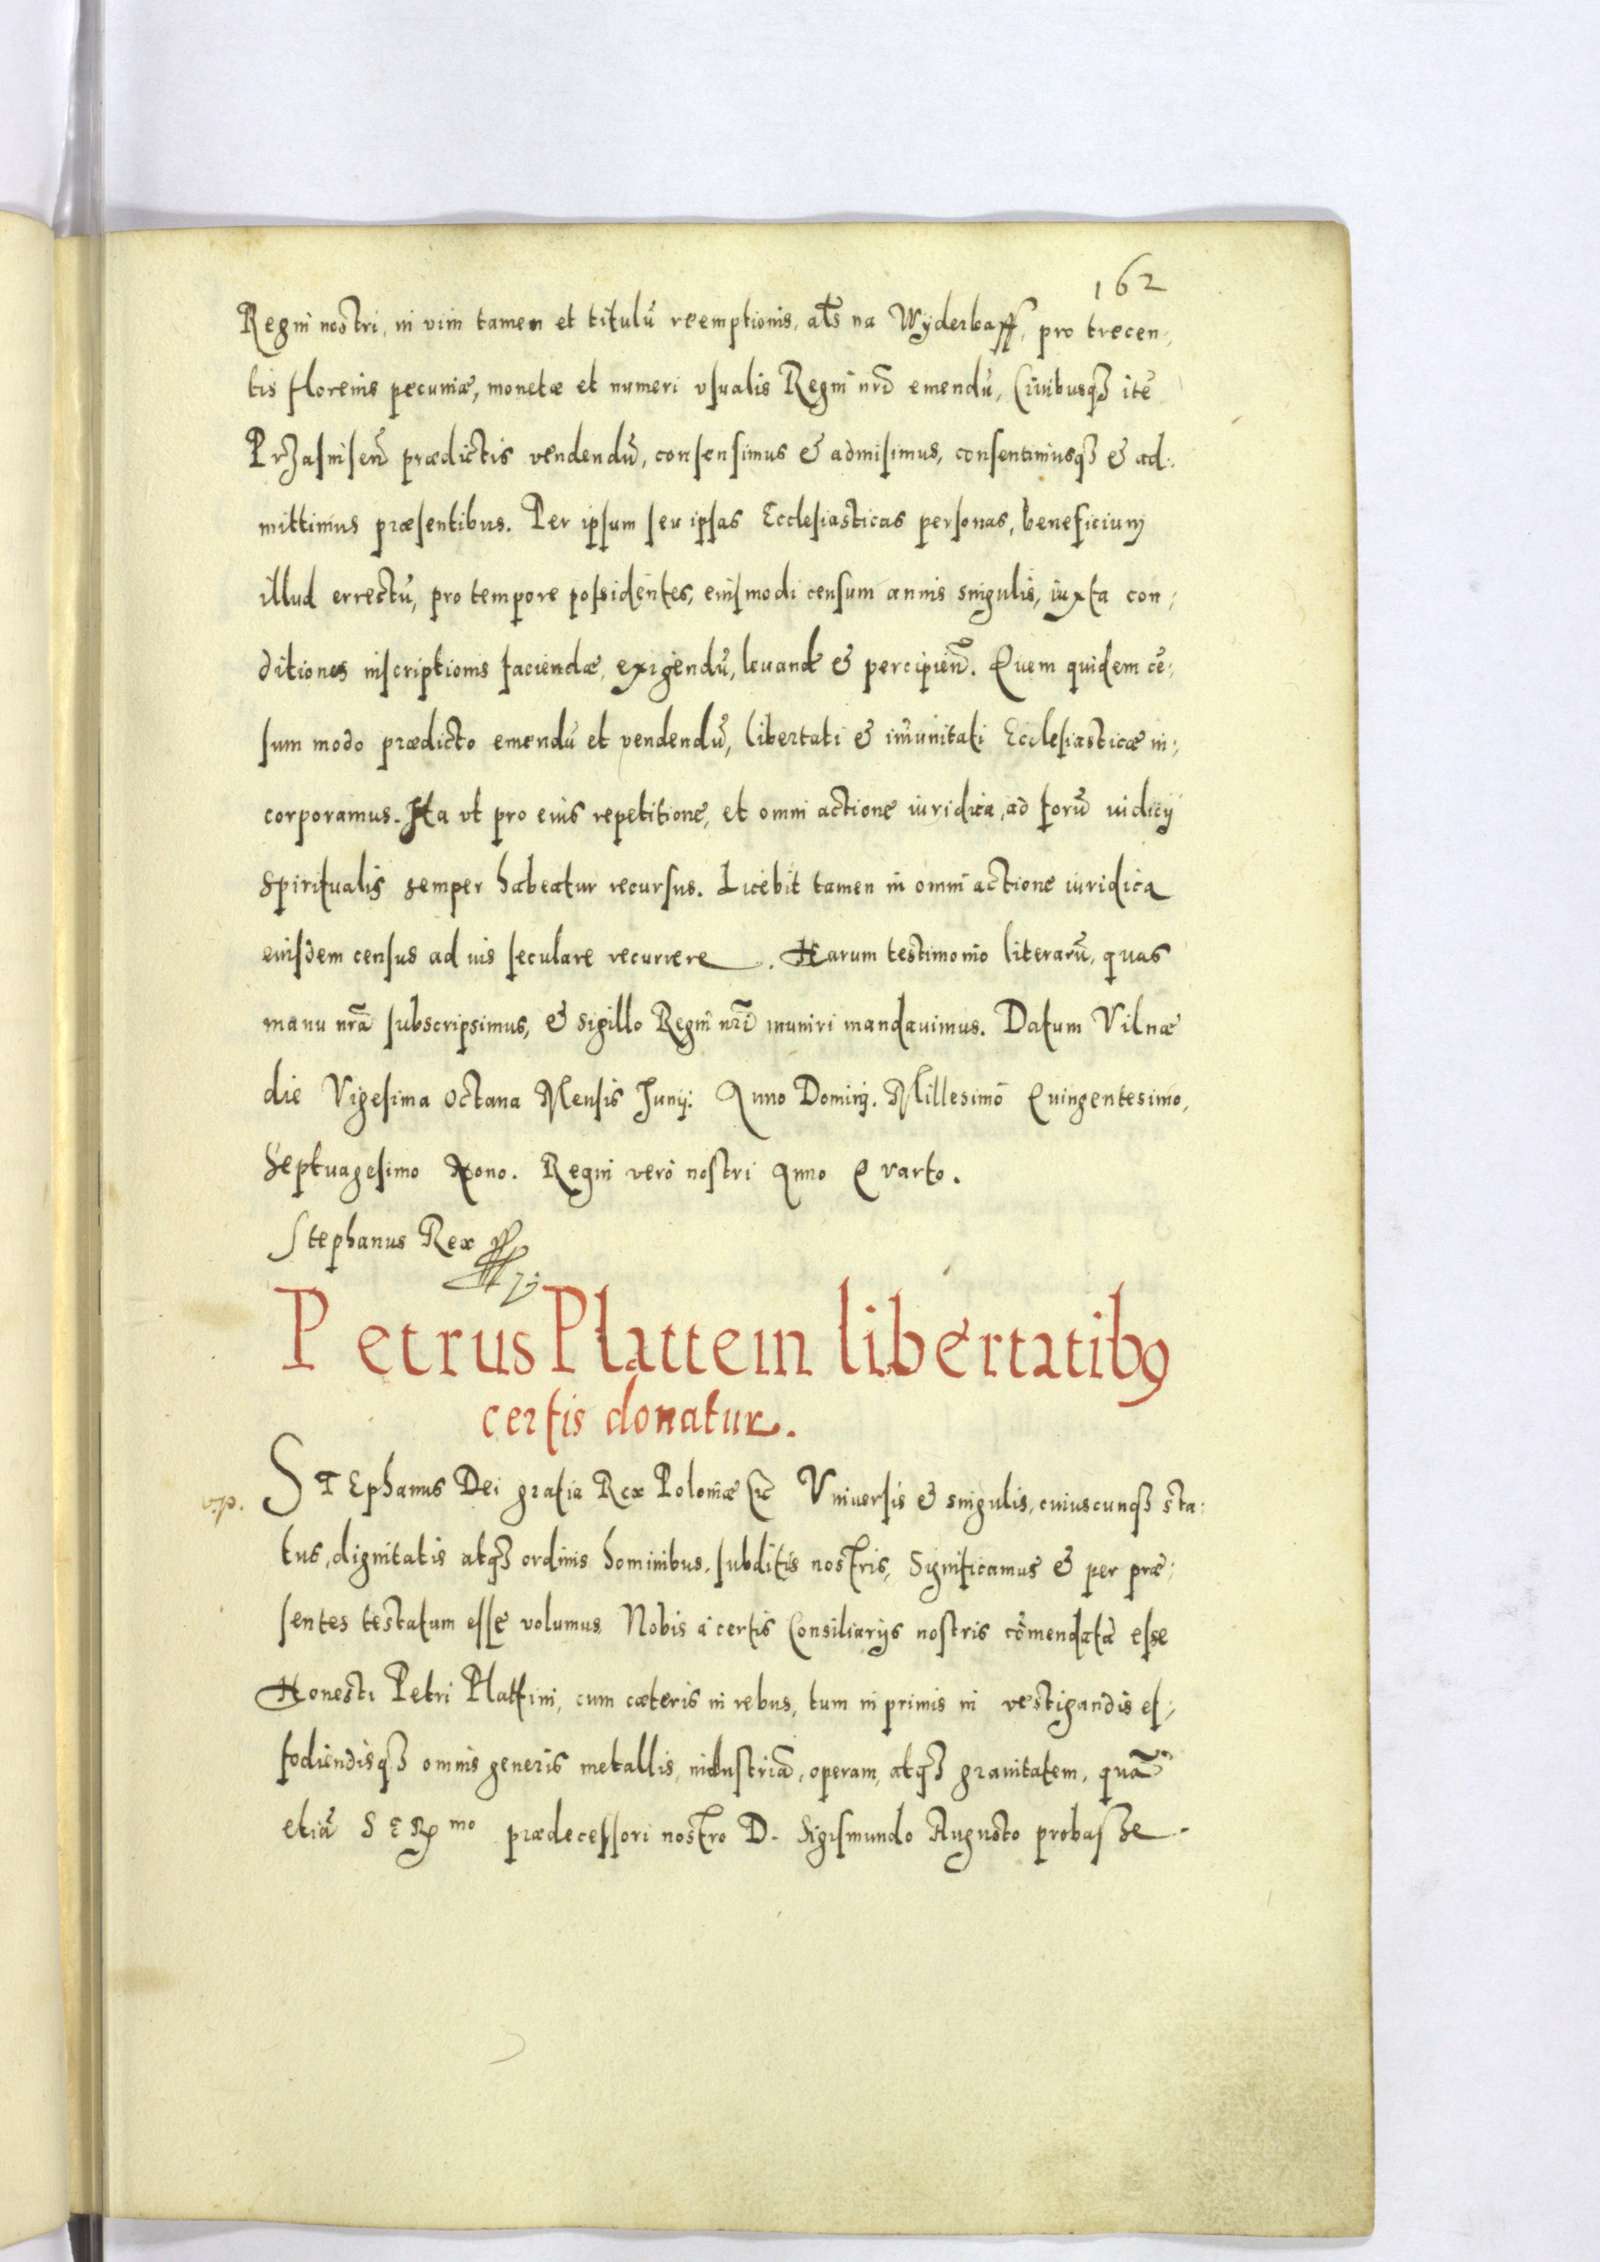 162
Regni nostri, in vim tamen et titulū reemptionis, al̄s na Wyderkaff, pro trecen:,
tis florenis pecuniæ, monetæ et numeri vsualis Regni nr̄i emendū, Ciuibusqꝫ itē
Przasnisen̄ prædictis vendendū, consensimus & admisimus, consentimusqꝫ & ad:,
mittimus præsentibus. Per ipsum seu ipsas Ecclesiasticas personas, beneficium
illud errectū, pro tempore possidentes, eiusmodi censum annis singulis, iuxta con:,
ditiones inscriptionis faciendæ, exigendū, leuand & percipien̄. Quem quidem cē:,
sum modo prædicto emendū et vendendū, libertati & im̄unitati Ecclesiasticæ in:,
corporamus. Ita vt pro eius repetitione, et omni actione iuridica, ad forū iudicij
Spiritualis semper habeatur recursus. Licebit tamen in omni actione iuridica
eiusdem census ad ius seculare recurrere. Harum testimonio literarū, quas
manu nr̄a subscripsimus, & sigillo Regni nr̄i muniri mandauimus. Datum Vilnæ
die Vigesima Octaua Mensis Junij. Anno Domini. Millesimo Quingentesimo,
Septuagesimo Nono. Regni vero nostri Anno Quarto.
Stephanus Rex
Petrus Plattein libertatibꝰ
certis donatur.
v.p.
STEphanus Dei gratia Rex Poloniæ &c Vniuersis & singulis, cuiuscunqꝫ sta:
tus, dignitatis atqꝫ ordinis hominibus, subditis nostris, Significamus & per præ:,
sentes testatum esse volumus Nobis a certis Consiliarijs nostris cōmendatā esse
Honesti Petri Plattini, cum cæteris in rebus, tum in primis in vestigandis ef:,
fodiendisqꝫ omnis generis metallis, industriā, operam, atqꝫ grauitatem, quā
etiā SERmo prædecessori nostro D. Sigismundo Augusto probasse